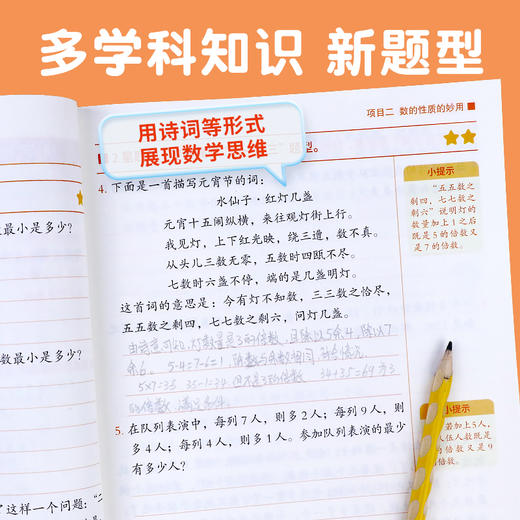 多学科知识 新题型
项目二 数的性质的妙用
用诗词等形式
展现数学思维
型。
4. 下面是一首描写元宵节的词：
水仙子·红灯几盏
元宵十五闹纵横，来往观灯街上行。
我见灯，上下红光映，绕三遭，数不真。
从头儿三数无零，五数时四瓯不尽。
七数时六盏不停，端的是几盏明灯。
这首词的意思是：今有灯不知数，三三数之恰尽，
五五数之剩四，七七数之剩六，问灯几盏。
由诗意可知，灯数量是3的倍数，且除以5余4，除以7
余6。 5-4=7-6=1
5×7=35 35-1=34 但不是3的倍数 34+35=69为3
的倍数，满足条件。
5. 在队列表演中，每列7人，则多2人；每列9人，则
多4人；每列4人，则多1人。参加队列表演的最少
有多少人？
小提示
“五五数之
剩四，七七数之
剩六”说明灯的
数量加上1之后
既是5的倍数又
是7的倍数。
小提示
若加上5人，
人伍人数既是
的倍数又是9
的倍数。
最小是多少？
数最小是多少？
了这样一个问题：“二